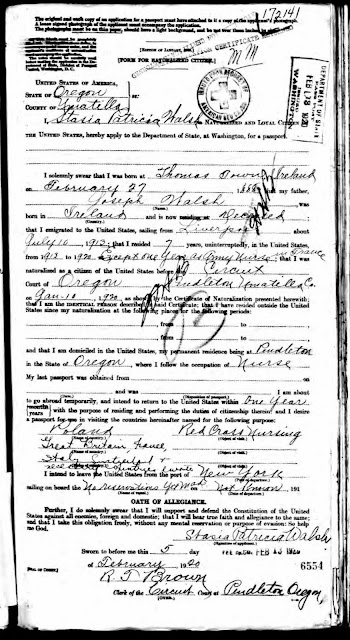 The original and each copy of an application for a passport must have attached to it a copy of the applicant's photograph.
A loose signed photograph of the applicant must accompany the application.
The photographs must be on thin paper, should have a light background, and be not over three inches
172141
[EDITION OF JANUARY,
[FORM FOR NATURALIZED CITIZEN.]
MM
AMERICAN RED CROSS
DEPARTMENT OF STATE
FEB 17 1920
WASHINGTON
UNITED STATES OF AMERICA,
STATE OF Oregon
COUNTY OF Umatilla
ss:
I, Stasia Patricia Walsh, a NATURALIZED AND LOYAL CITIZEN OF
THE UNITED STATES, hereby apply to the Department of State, at Washington, for a passport.
I solemnly swear that I was born at Thomas Town, Ireland
on February 27 that my father,
Joseph Walsh was
born in Ireland and is now residing at Deceased
that I emigrated to the United States, sailing from Liverpool about
July 10, 1912; that I resided 7 years, uninterruptedly, in the United States,
from 1912 to 1920 Except one Year as Army Nurse in France that I was
naturalized as a citizen of the United States before the Circuit
Court of Oregon Pendleton Umatilla Co.
on Jan. 10 1920, as shown by the Certificate of Naturalization presented herewith;
that I am the IDENTICAL PERSON described in said Certificate; that I have resided outside the United
States since my naturalization at the following places for the following periods:
from to
from to
and that I am domiciled in the United States, my permanent residence being at Pendleton
in the State of Oregon, where I follow the occupation of Nurse
My last passport was obtained from on
and was I am about
to go abroad temporarily, and intend to return to the United States within One Year
with the purpose of residing and performing the duties of citizenship therein; and I desire
a passport for use in visiting the countries hereinafter named for the following purpose:
Poland Red Cross Nursing
Great Britain France
Italy
I intend to leave the United States from the port of New York
sailing on board the No reservations yet made not known 191
OATH OF ALLEGIANCE.
Further, I do solemnly swear that I will support and defend the Constitution of the United
States against all enemies, foreign and domestic; that I will bear true faith and allegiance to the same;
and that I take this obligation freely, without any mental reservation or purpose of evasion: So help
me God.
Stasia Patricia Walsh
Sworn to before me this 5 day
of February 1920
6554
R T Brown
Clerk of the Circuit Court at Pendleton Oregon.